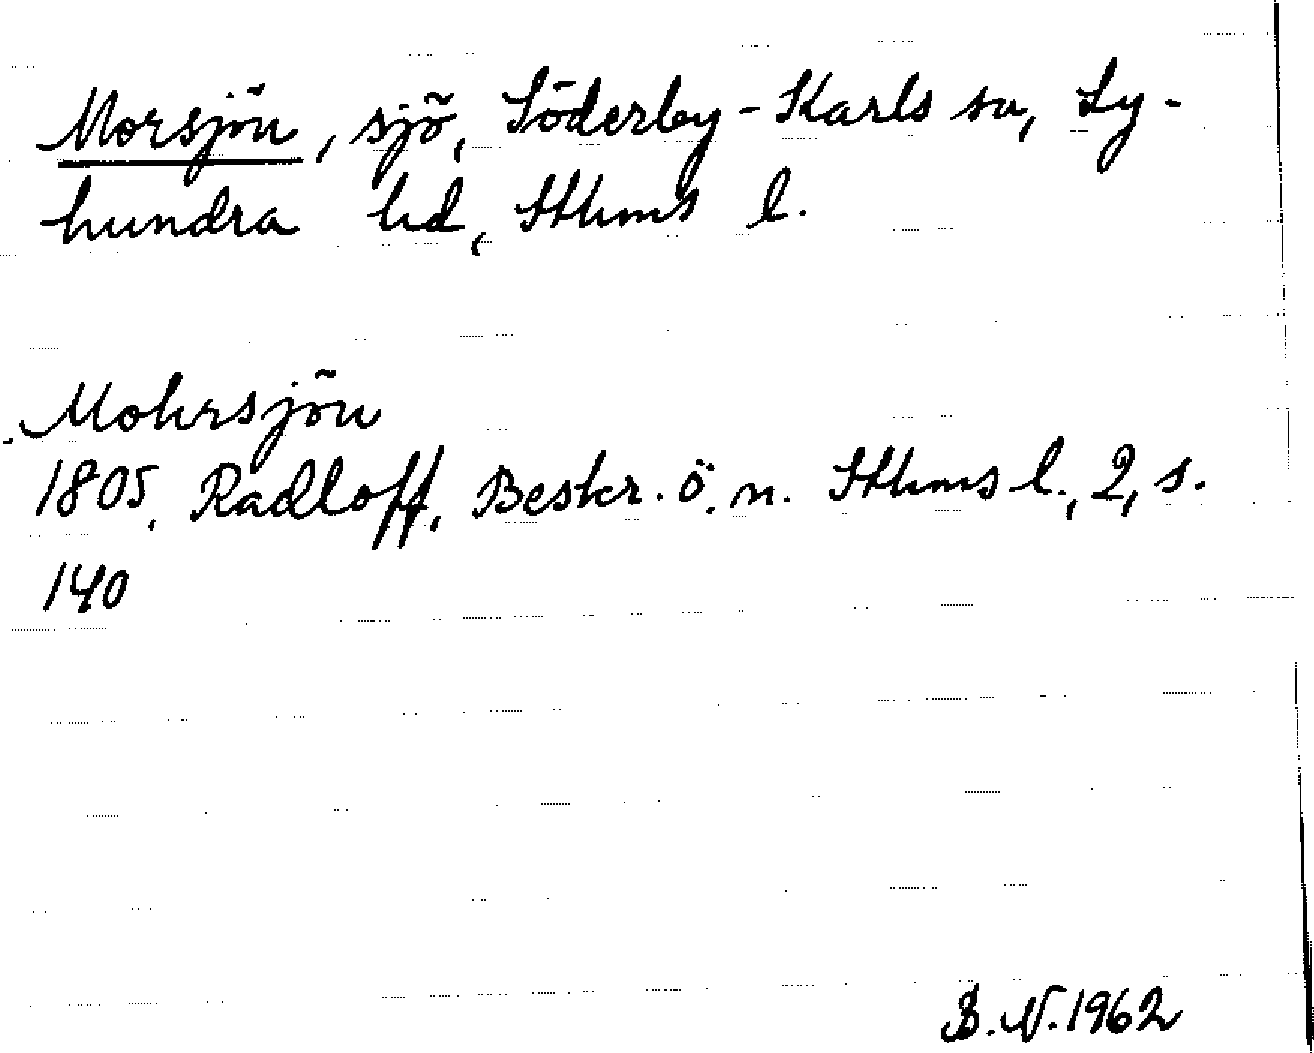 Morsjön, sjö, Söderby-Karls sn, Ly-
hundra hd, Sthms l.
Mohrsjön
1805, Radloff, Beskr. ö. n. Sthms l., 2, s.
140
B.N. 1962